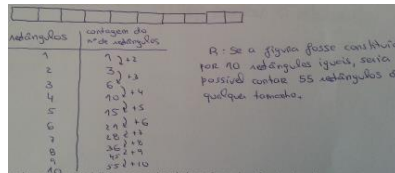 retângulos | contagem do
nº de retângulos
1 | 1 } +2
2 | 3 } +3
3 | 6 } +4
4 | 10 } +5
5 | 15 } +6
6 | 21 } +7
7 | 28 } +8
8 | 36 } +9
9 | 45 } +10
10 | 55
R: Se a figura fosse
por 10 retângulos iguais, seria
possível contar 55 retângulos
qualquer tamanho.